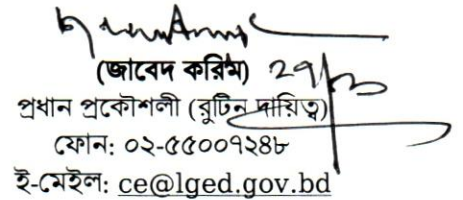 (জাবেদ করিম)
প্রধান প্রকৌশলী (রুটিন দায়িত্ব)
ফোন: ০২-৫৫০০৭২৪৮
ই-মেইল: ce@lged.gov.bd